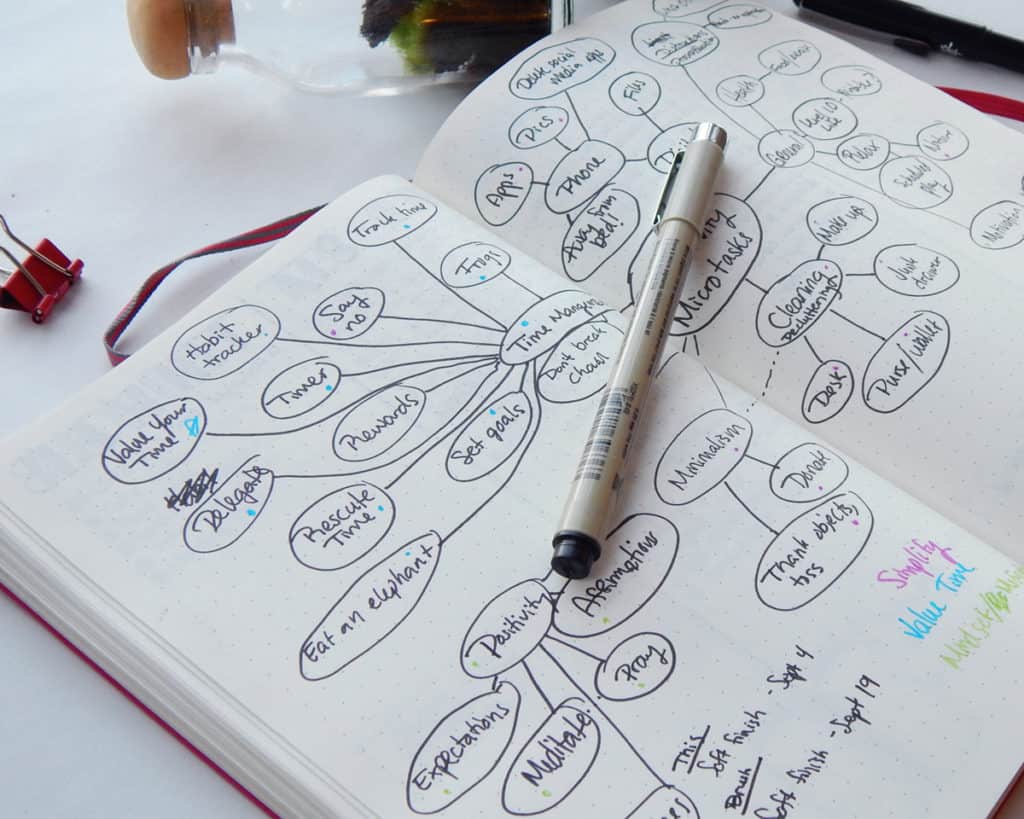 Delete social
media apps
Files
Pics
Phone
Apps
Away from
bed!
General
Health
Level 10
Life
Relax
Schedule
play
Motivation
Make up
Cleaning
Decluttering
Junk
drawer
Purse/wallet
Desk
Microtasks
Track time
Frogs
Say
no
Habit
tracker
Time Manager
Don't break
chain
Timer
Rewards
Set goals
Value your
Time
Delegate
Rescue
Time
Eat an elephant
Minimalism
Donate
Thank objects,
toss
Affirmations
Positivity
Pray
Expectations
Meditate
Simplify
Value Time
This
Soft finish - Sept 4
Brush
Soft finish - Sept 19